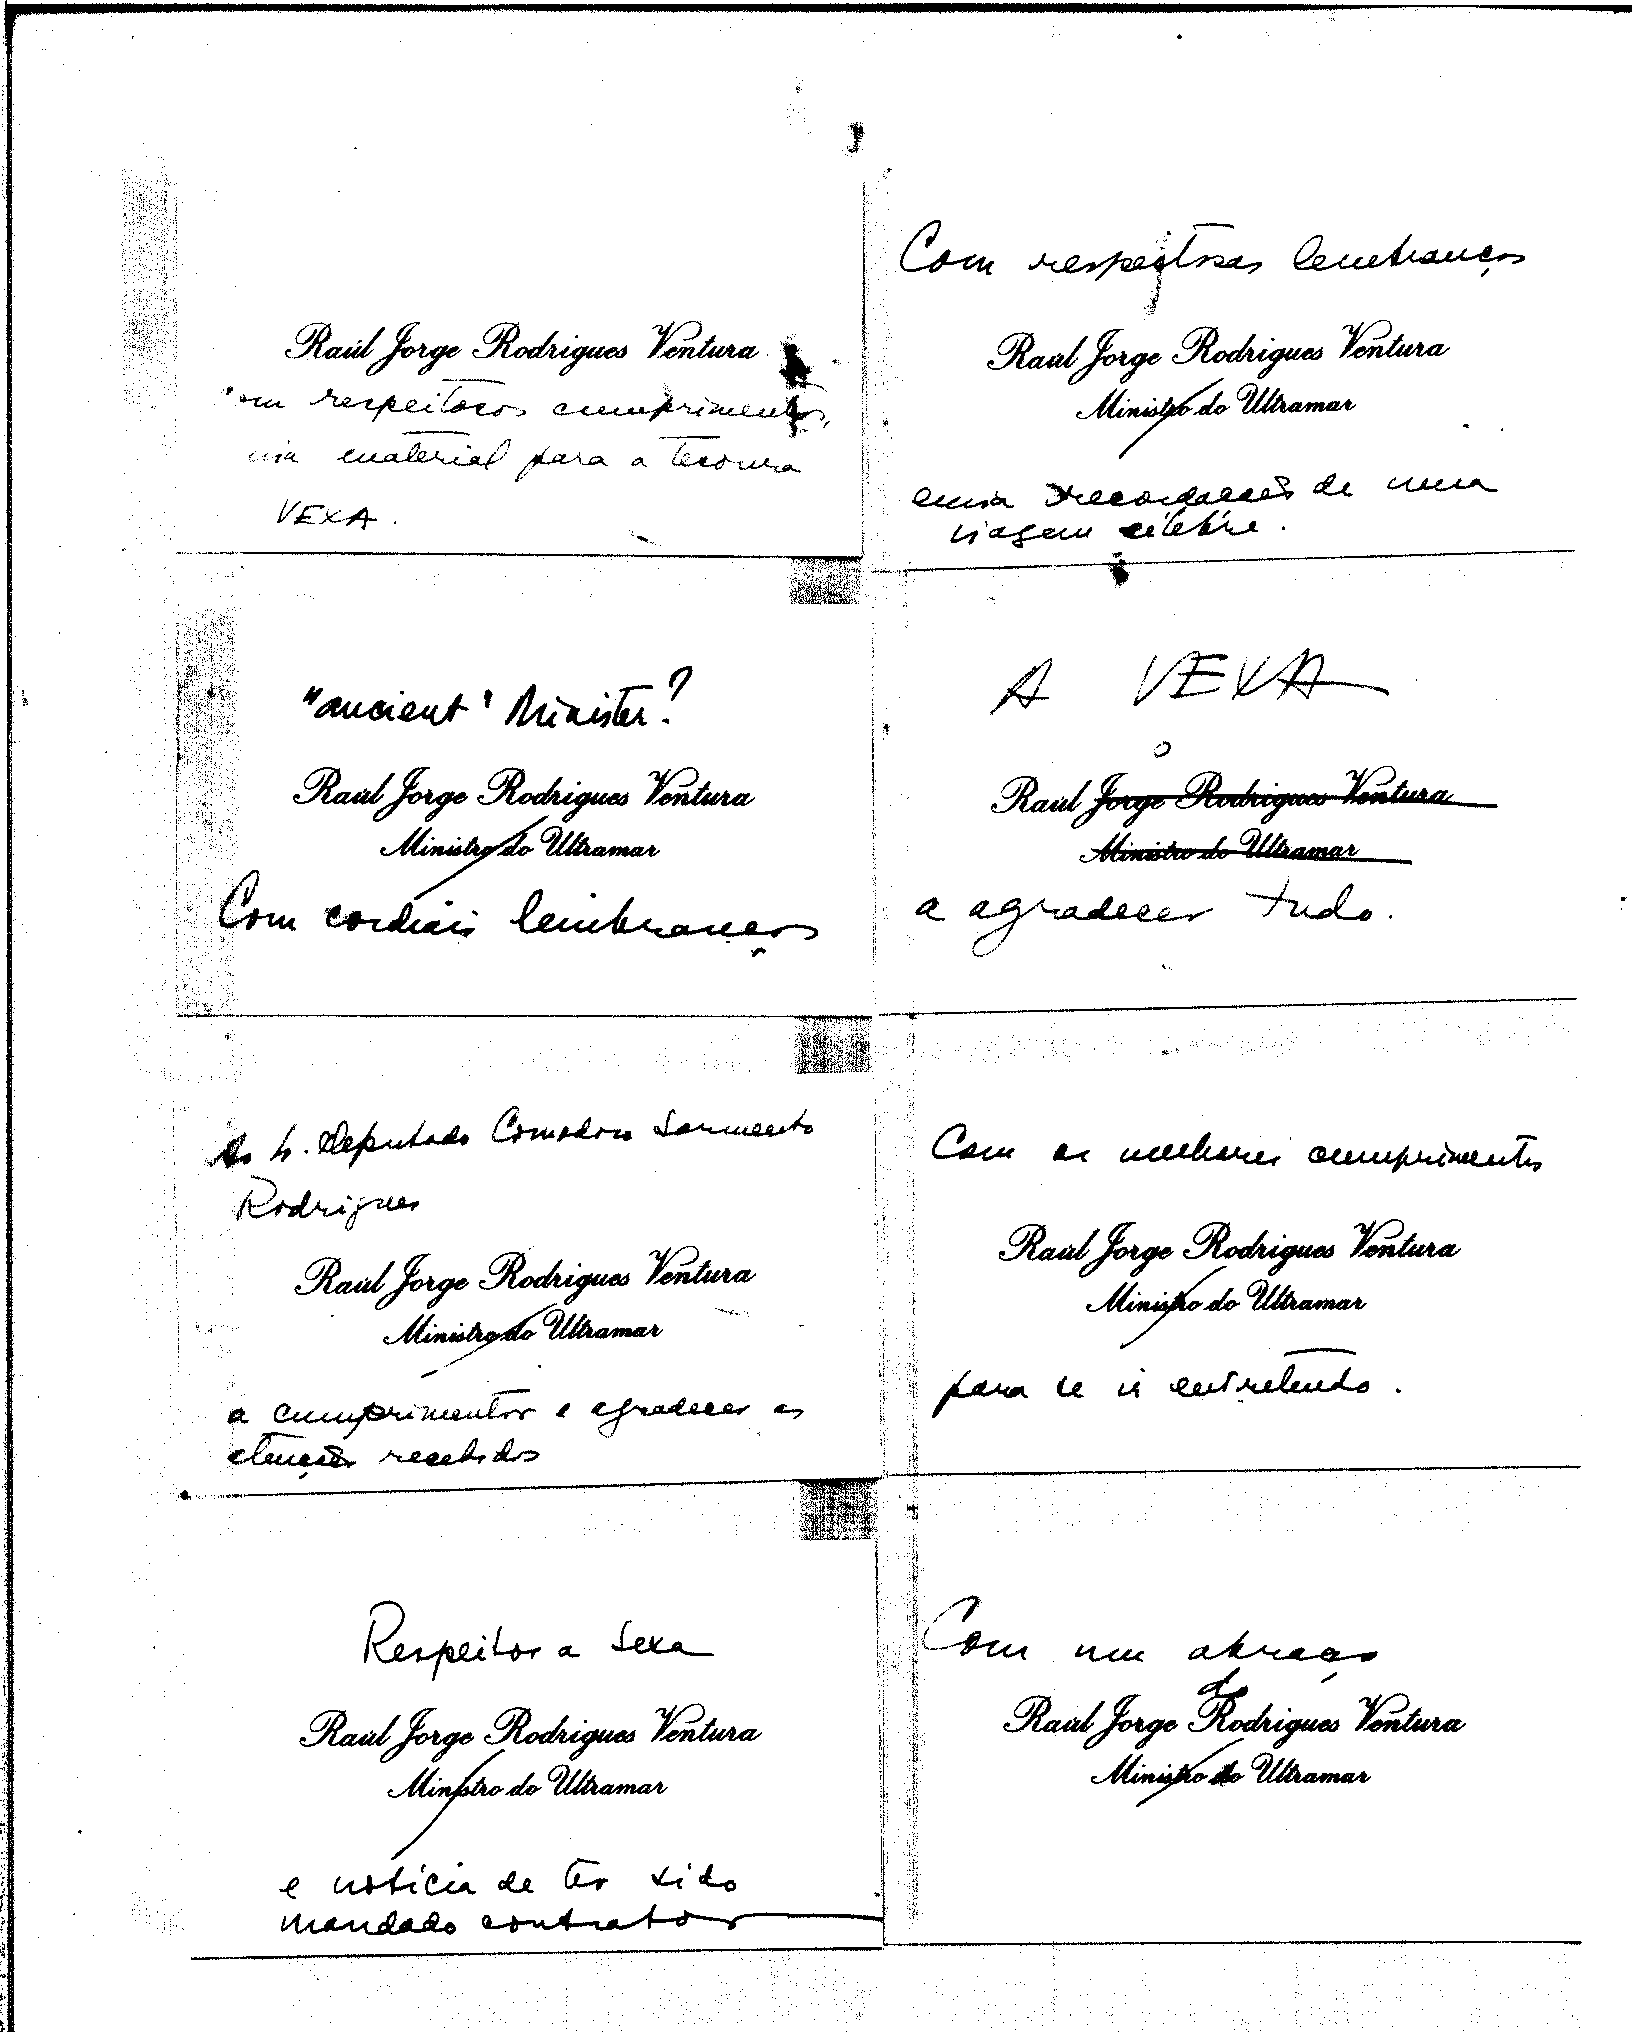 Raúl Jorge Rodrigues Ventura
com respeitosos cumprimentos,
material para a tesoura
VEXA.
Com respeitosas lembranças
Raúl Jorge Rodrigues Ventura
Ministro do Ultramar
envia recordações de uma
viagem célebre.
"ancient" Minister?
Raúl Jorge Rodrigues Ventura
Ministro do Ultramar
Com cordiais lembranças
A VEXA
o
Raúl Jorge Rodrigues Ventura
Ministro do Ultramar
a agradecer tudo.
Ao Sr. Deputado Comodoro Sarmento
Rodrigues
Raúl Jorge Rodrigues Ventura
Ministro do Ultramar
a cumprimentar e agradecer as
atenções recebidas
Com os melhores cumprimentos
Raúl Jorge Rodrigues Ventura
Ministro do Ultramar
para se ir entretendo.
Respeitos a Sexa
Raúl Jorge Rodrigues Ventura
Ministro do Ultramar
e notícia de ter sido
mandado contratar
Com um abraço
de
Raúl Jorge Rodrigues Ventura
Ministro do Ultramar